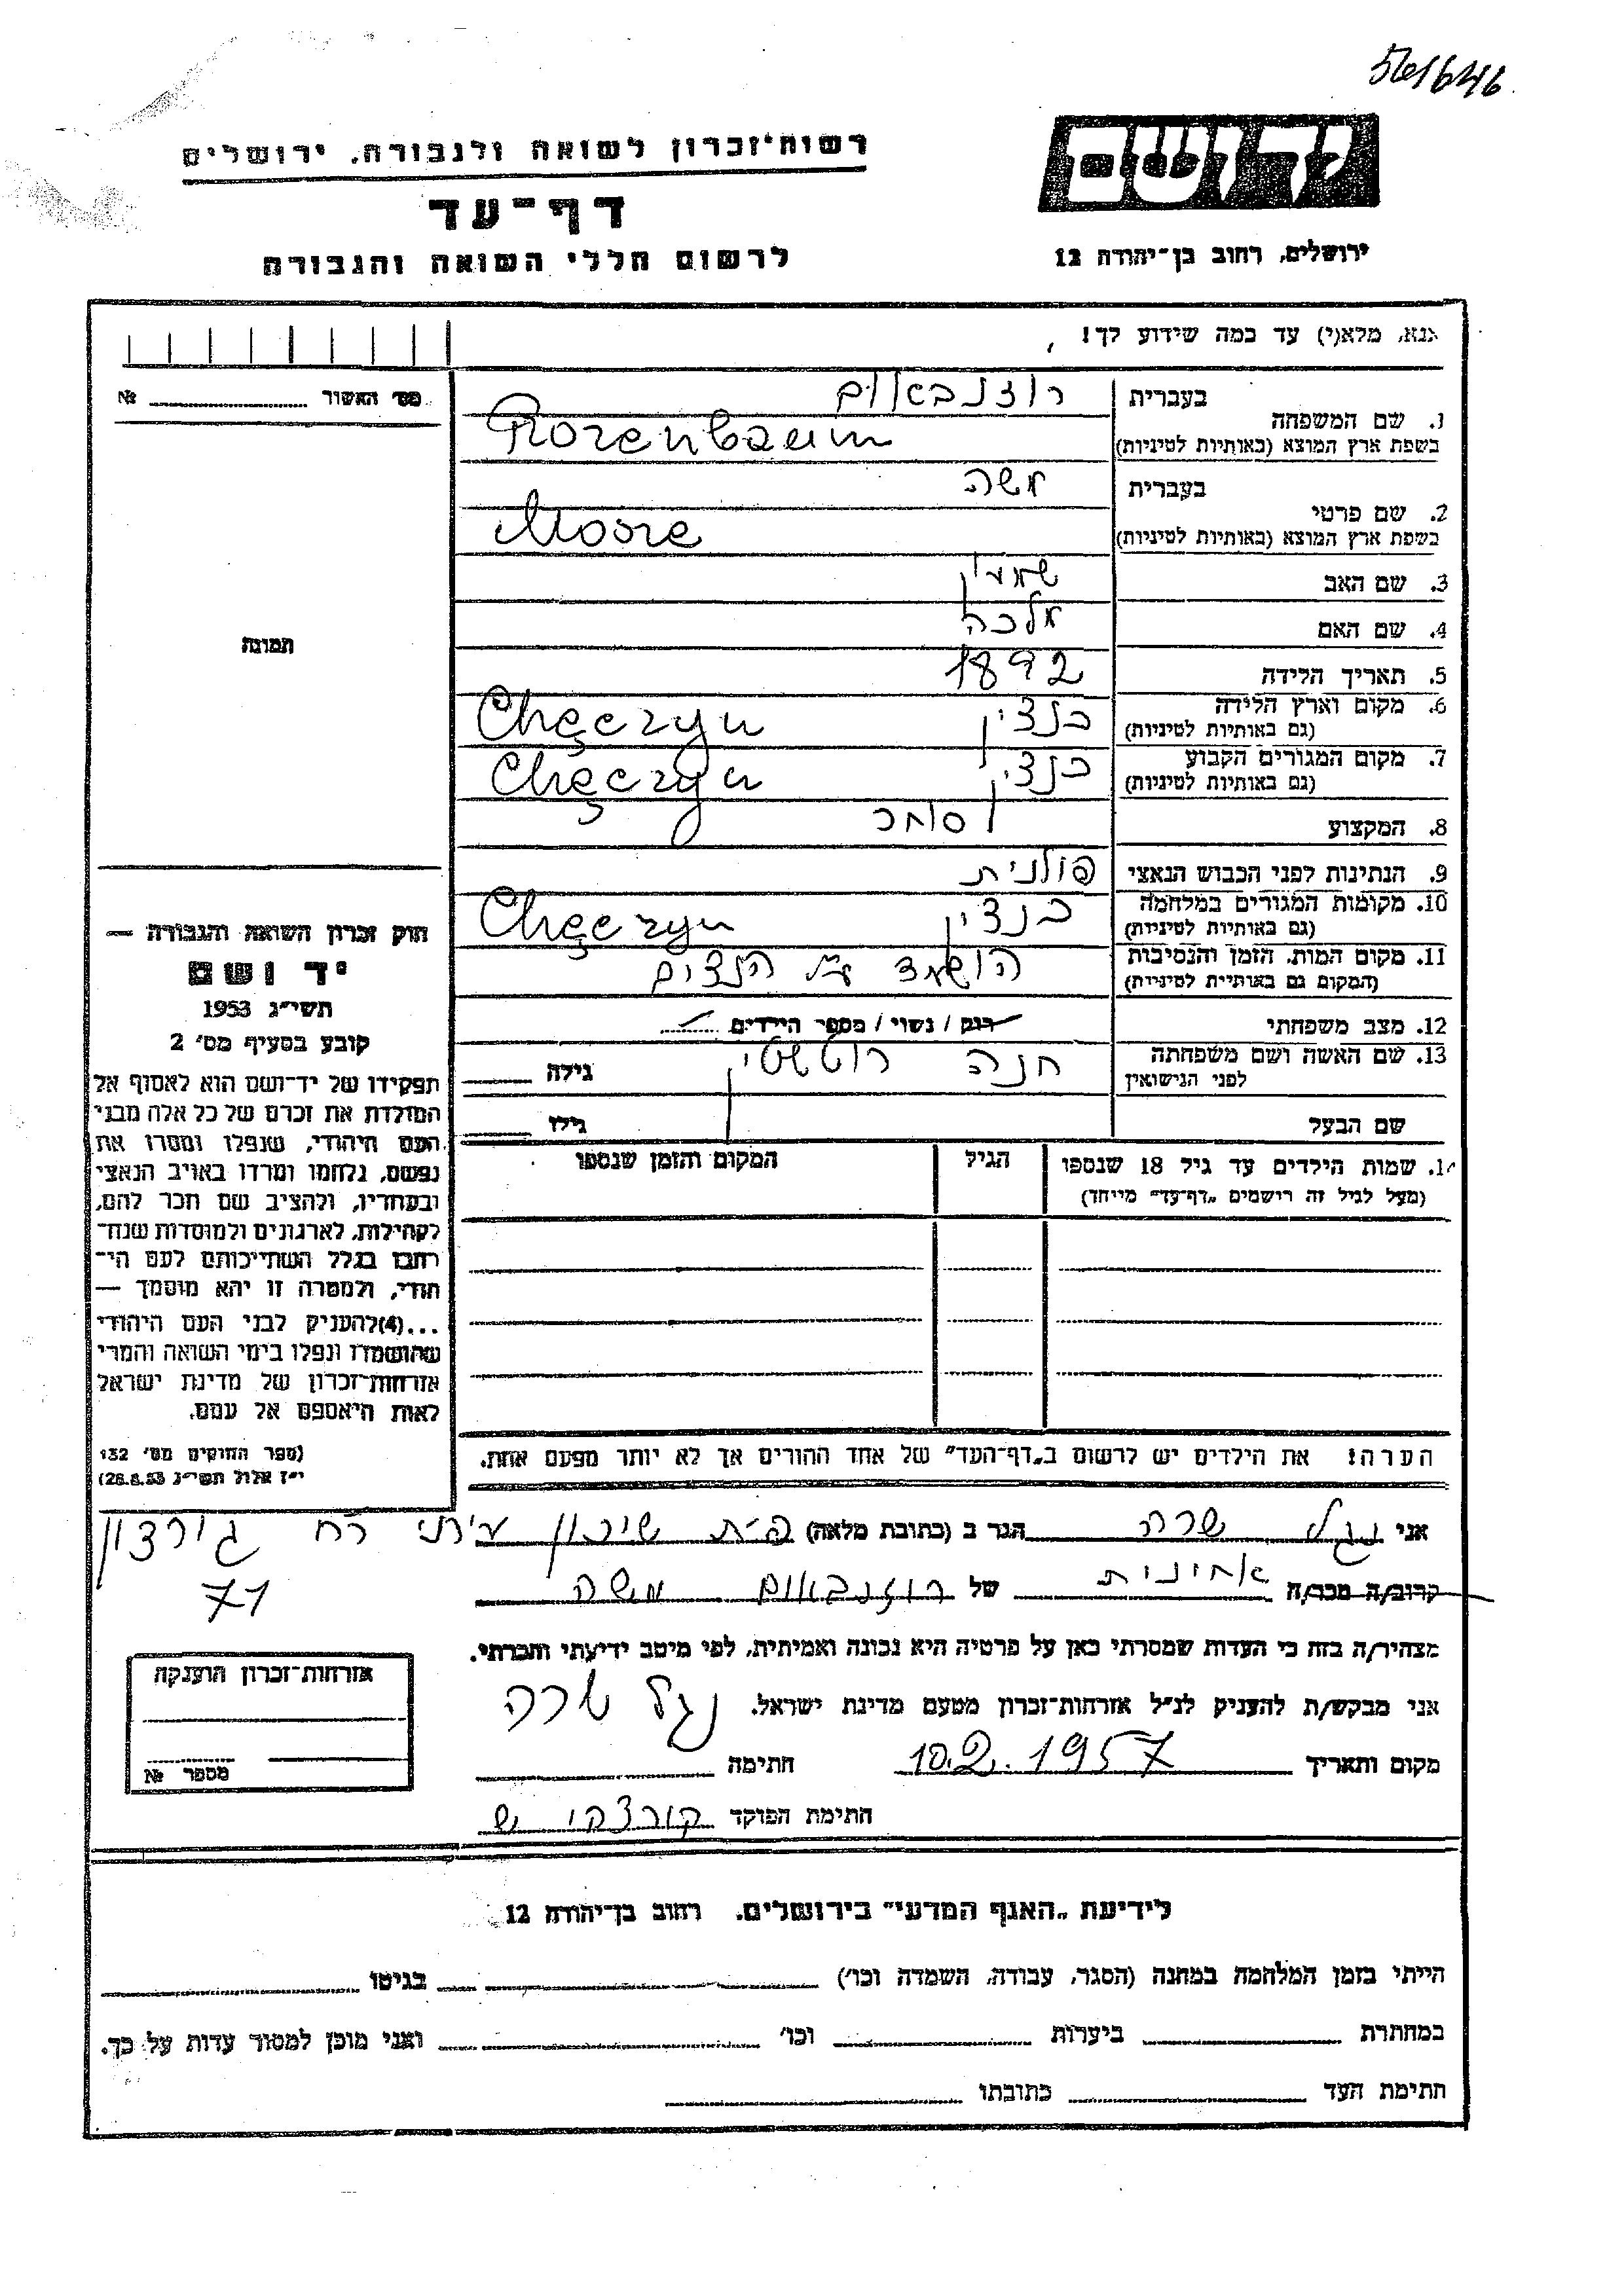 561646
רשות־זכרון לשואה ולגבורה, ירושלים
יד ושם
דף־עד
לרשום חללי השואה והגבורה
ירושלים, רחוב בן־יהודה 12
נא, מלא(י) עד כמה שידוע לך!
מס׳ האשור № 
1. שם המשפחה
בעברית רוזנבאום
בשפת ארץ המוצא (באותיות לטיניות) Rozenbaum
2. שם פרטי
בעברית משה
בשפת ארץ המוצא (באותיות לטיניות)
3. שם האב שמעון
4. שם האם מלכה
5. תאריך הלידה 1892
6. מקום וארץ הלידה (גם באותיות לטיניות) חנצין Chęczyn
7. מקום המגורים הקבוע (גם באותיות לטיניות) חנצין Chęczyn
8. המקצוע סוחר
9. הנתינות לפני הכבוש הנאצי פולנית
10. מקומות המגורים במלחמה (גם באותיות לטיניות) חנצין Chęczyn
11. מקום המות, הזמן והנסיבות (המקום גם באותיות לטיניות) הושמד ע״י הנצים
12. מצב משפחתי רוק / נשוי / מספר הילדים
13. שם האשה ושם משפחתה לפני הנישואין חנה גילה
שם הבעל גילו
14. שמות הילדים עד גיל 18 שנספו (מעל לגיל זה רישמים „דף־עד״ מייחד)
הגיל
המקום והזמן שנספו
תמונה
חוק זכרון השואה והגבורה —
יד ושם
תשי״ג 1953
קובע בסעיף מס׳ 2
תפקידו של יד־ושם הוא לאסוף אל
המולדת את זכרם של כל אלה מבני
העם היהודי, שנפלו ומסרו את
נפשם, נלחמו ומרדו באויב הנאצי
ובעוזריו, ולהציב שם וזכר להם,
לקהילות, לארגונים ולמוסדות שנח־
רבו בגלל השתייכותם לעם הי־
הודי, ולמטרה זו יהא מוסמך —
...(4)להעניק לבני העם היהודי
שהושמדו ונפלו בימי השואה והמרי
אזרחות־זכרון של מדינת ישראל
לאות היאספם אל עמם.
(ספר החוקים מס׳ 132
י״ז אלול תשי״ג 28.8.53)
הערה! את הילדים יש לרשום ב„דף־העד״ של אחד ההורים אך לא יותר מפעם אחת.
אני נגל שרה הגר ב (כתובת מלאה) פ״ת שיכון עירוני רח גורדון
71
קרוב/ה מכר/ה אחינית של רוזנבאום משה
מצהיר/ה בזה כי העדות שמסרתי כאן על פרטיה היא נכונה ואמיתית, לפי מיטב ידיעתי והכרתי.
אני מבקש/ת להעניק לנ״ל אזרחות־זכרון מטעם מדינת ישראל. נגל שרה
מקום ותאריך 10.2.1957 חתימה
חתימת הפוקד קורצקי ש
אזרחות־זכרון הוענקה
מספר №
לידיעת „האגף המדעי״ בירושלים, רחוב בן־יהודה 12
הייתי בזמן המלחמה במחנה (הסגר, עבודה, השמדה וכו׳) בגיטו
במחתרת ביערות וכו׳ ואני מוכן למסור עדות על כך.
חתימת העד כתובתו